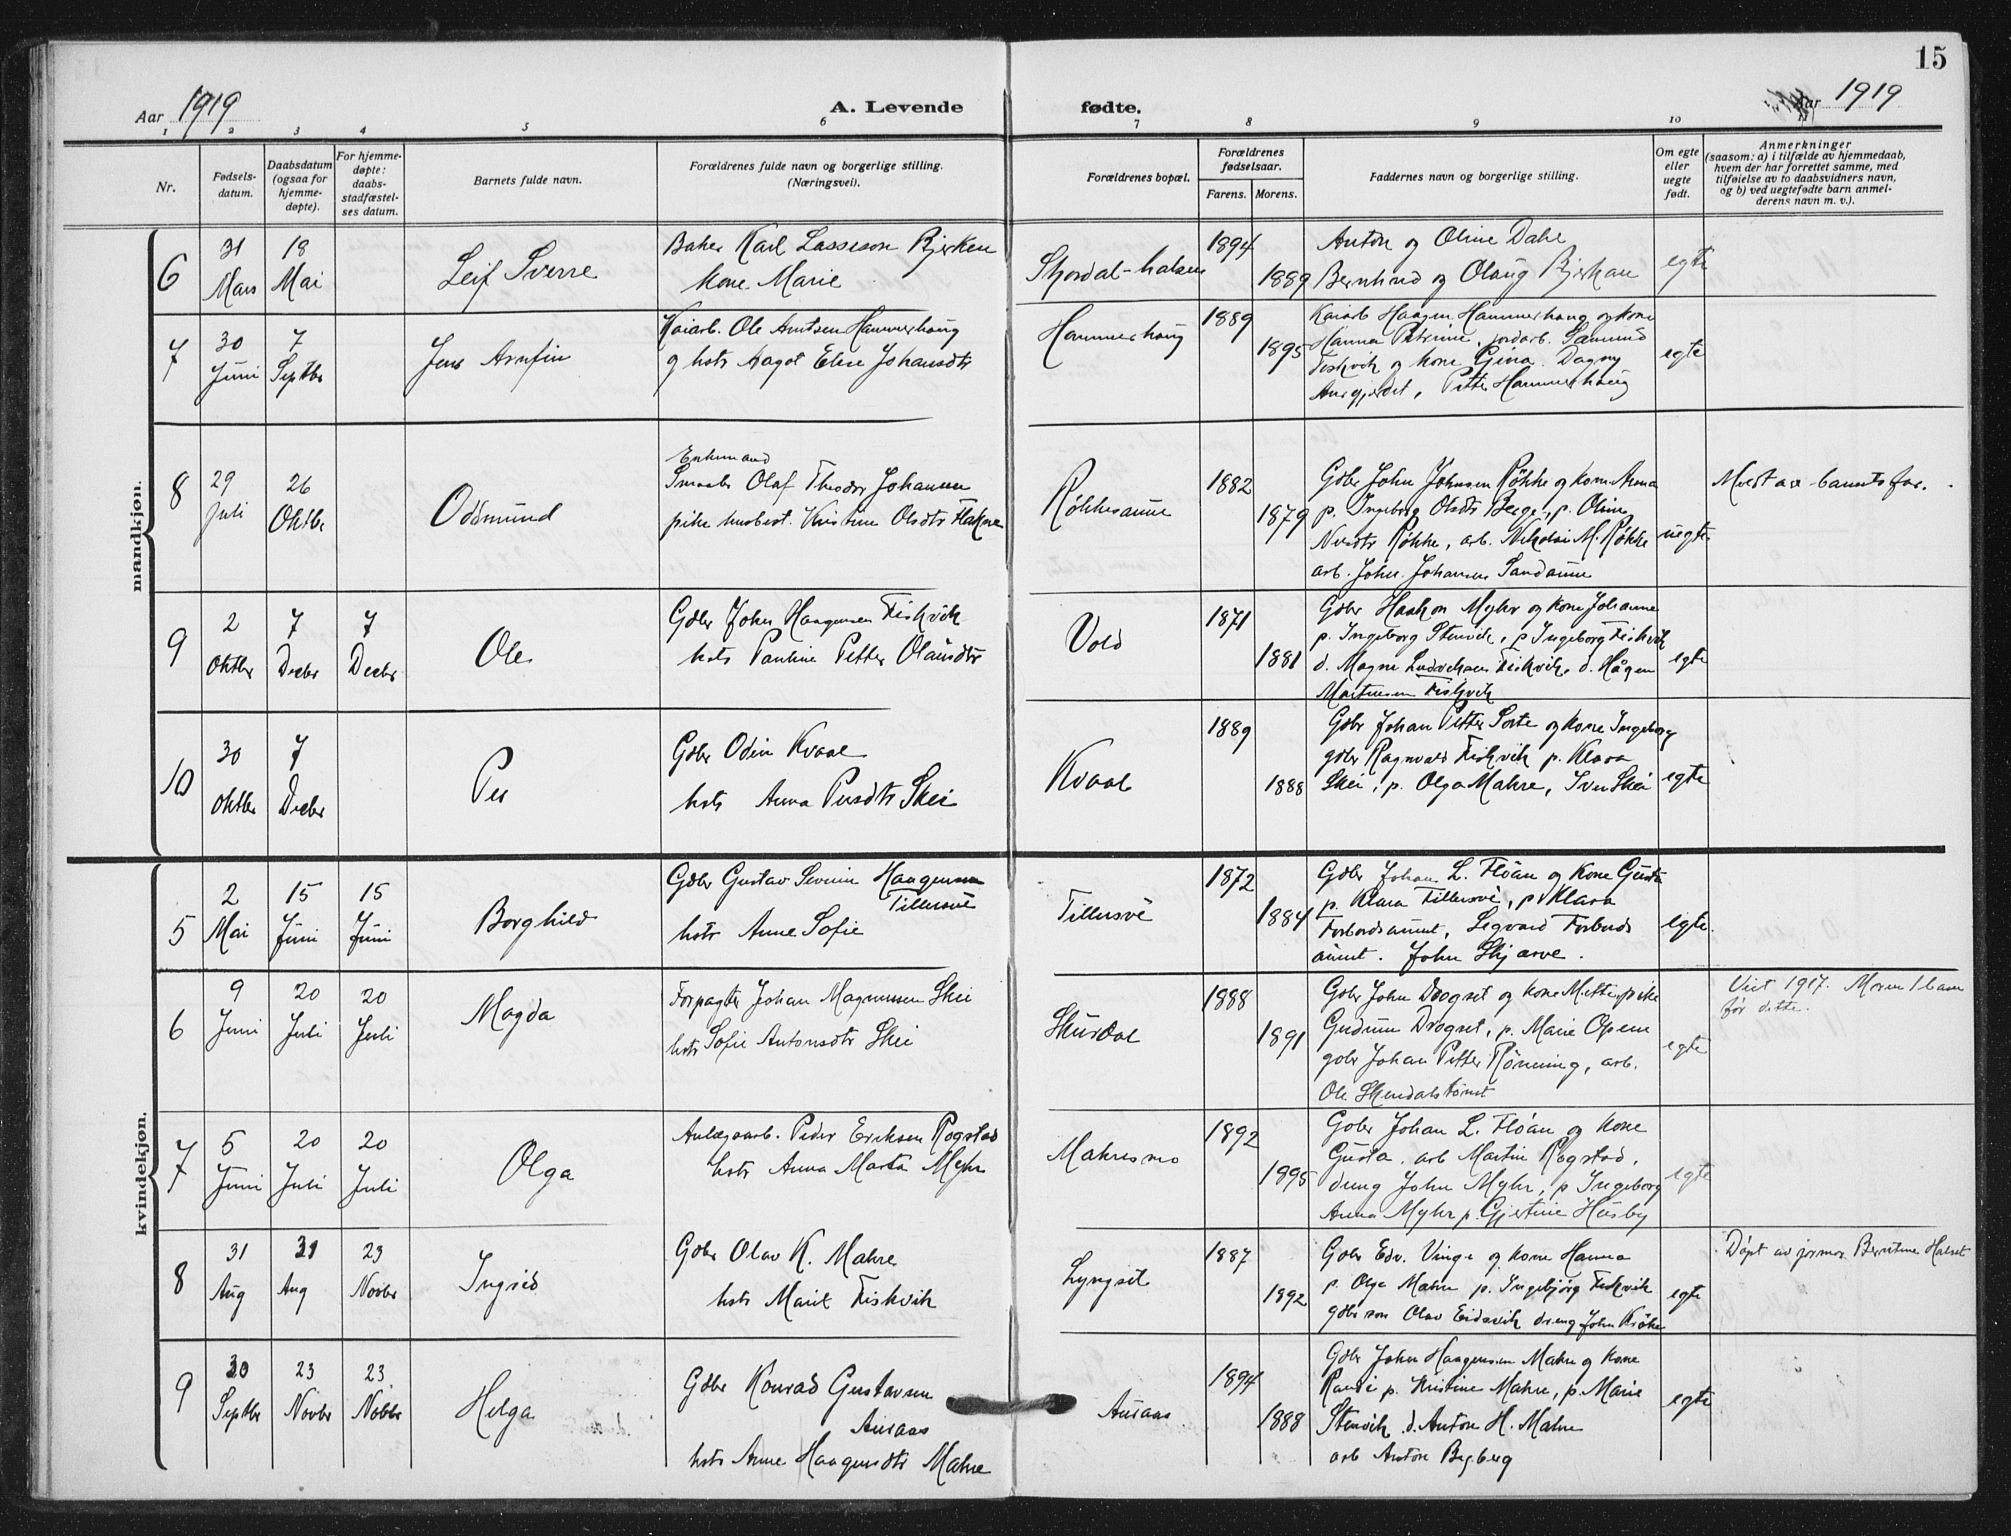 15
Aar 1919
A. Levende
fødte.
Aar 1919
1 2 3 4 5 6 7 8 9 10 11
Nr.
Fødsels-
datum.
Daabsdatum
(ogsaa for
hjemme-
døpte).
For hjemme-
døpte:
daabs-
stadfæstel-
ses datum.
Barnets fulde navn.
Forældrenes fulde navn og borgerlige stilling.
(Næringsvei).
Forældrenes bopæl.
Forældrenes
fødselsaar.
Farens. Morens.
Faddernes navn og borgerlige stilling.
Om egte
eller
uegte
født.
Anmerkninger
(saasom: a) i tilfælde av hjemmedaab,
hvem der har forrettet samme, med
tilføielse av to daabsvidners navn,
og b) ved uegtefødte barn anmel-
derens navn m. v.).
mandkjøn.
6
31
Mars
18
Mai
Leif Sverre
Baker Karl Lassesson Bjerken
kone Marie
Stjørdal-halsen
1894
1889
Anton og Oline Dahl
Bernhard og Olaug Bjerkan
egte
7
30
Juni
7
Septbr
Jens Arnfin
Kaiarb. Ole Arntsen Hammerhaug
og hstr Aagot Elise Johansdtr
Hammerhaug
1889
1895
Kaiarb Haagen Hammerhaug og kone
Hanna Petrine, jordarb. Samund
Fiskvik og kone Gina. Dagny
Petter Hammerhaug
egte
8
29
Juli
26
Oktbr
Oddmund
Enkemand
Smaabr Olaf Theodor Johansen
pike husbest. Kristine Olsdtr Flakne
Røkkesaune
1882
1879
Gdbr John Johnsen Røkke og kone Anna
p. Ingeborg Olsdtr Berge, p. Oline
Røkke, arb. Nikolai M. Røkke
arb. John Johansen Sandaune
uegte
Meldt av barnets far.
9
2
Oktbr
7
Decbr
7
Decbr
Ole
Gdbr John Haagensen Fiskvik
hstr Pauline Petter Olausdtr
Vold
1871
1881
Gdbr Haakon Myhr og kone Johanne
p. Ingeborg Stenvik, p Ingeborg Fiskvik
d. Magne Ludviksen Fiskvik, d. Hågen
Martinsen Fiskvik
egte
10
30
Oktbr
7
Decbr
Per
Gdbr Odin Kvaal
hstr Anna Persdtr Skei
Kvaal
1889
1888
Gdbr Johan Petter Sorte og kone Ingeborg
gdbr Ragnvald Fiskvik p. Klara
Skei, p. Olga Mahre, Iver Skei
egte
kvindekjøn.
5
2
Mai
15
Juni
15
Juni
Borghild
Gdbr Gustav Severin Haagensen
Tillersve
hstr Anne Sofie
Tillersve
1872
1884
Gdbr Johan L. Fløan og kone Gusta
p. Klara Tillersve, p. Klara
Forbordsaunet, Segvard Forbords
aunet. John Skjærve.
egte.
6
9
Juni
20
Juli
20
Juli
Magda
Forpagter Johan Magnussen Skei
hstr Sofie Antonsdtr Skei
Skurdal
1888
1891
Gdbr John Drogset og kone Mette, pike
Gudrun Drogset, p. Marie Opem
gdbr Johan Petter Rønning, arb.
Ole
egte
Viet 1917. Moren 1 barn
før dette.
7
5
Juni
20
Juli
20
Juli
Olga
Anlægsarb. Peder Eriksen Rogstad
hstr Anna Marta Myhr
Mahresmo
1892
1895
Gdbr Johan L. Fløan og kone
Gusta, arb Martin Rogstad,
dreng John Myhr, p Ingeborg
Anna Myhr p. Gjertine Husby
egte
8
31
Aug
31
Aug
23
Novbr
Ingrid
Gdbr Olav K. Mahre
hstr Marit Fiskvik
Lyngset
1887
1892
Gdbr Edv. Vinge og kone Hanna
p. Olga Mahre p. Ingebjørg Fiskvik
gdbr søn Olav Eidsvik dreng John
egte
Døpt av jormor Berntine Halset
9
30
Septbr
23
Novbr
23
Novbr
Helga
Gdbr Konrad Gustavsen
Auraas
hstr Anne Haagensdtr Mahre
Auraas
1894
1888
Gdbr John Haagensen Mahre og kone
Randi p. Kristine Mahre, p. Marie
Stenvik d. Anton H. Mahre
arb Anton Begberg
egte